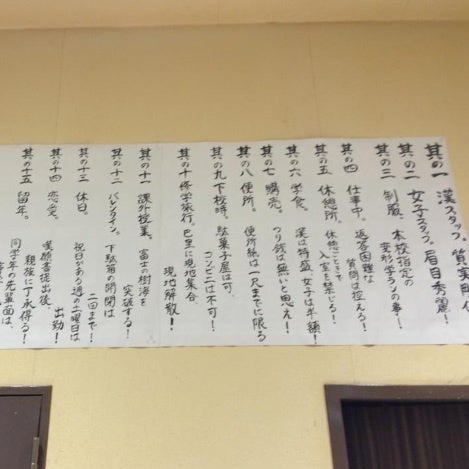 其の一 漢スタッフ。質実剛
其の二 女子スタッフ。眉目秀麗!
其の三 制服。本校指定の
変形学ランの事!
其の四 仕事中。返答困難な
質問は控える!
其の五 休憩所。休憩ごときで
入室を禁じる!
其の六 学食。漢は特盛、女子は半額!
其の七 購売。つり銭は無いと思え!
其の八 便所。便所紙は一尺までに限る
其の九 下校時。駄菓子屋は可、
コンビニは不可!
其の十 修学旅行。巴里に現地集合、
現地解散!
其の十一 課外授業。富士の樹海を
突破する!
其の十二 バレンタイン。下駄箱の開閉は
二回まで!
其の十三 休日。祝日がある週の土曜日は
出勤!
其の十四 恋愛。嘆願書提出後、
親族に了承得る!
其の十五 留年。同学年の先輩面は、